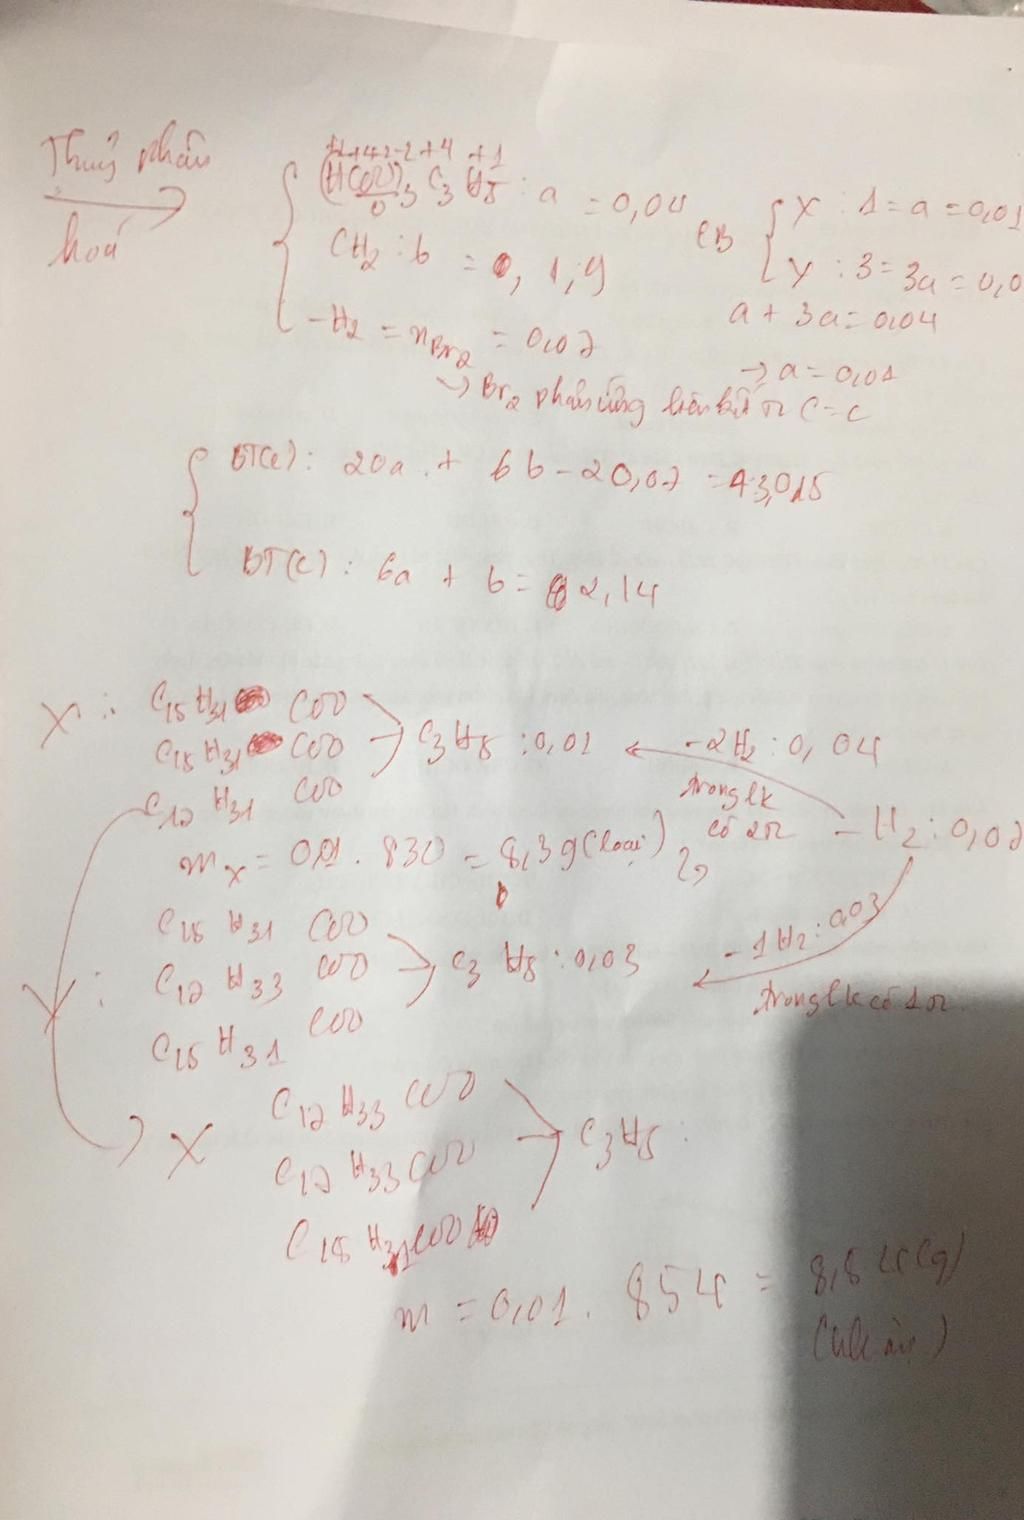 Thuỷ phân
hoá
+1+4-2-2+4 +1
(HCOO)3 C3H5 : a = 0,04
CH2 : b = 0, 1,9
-H2 = nBr2 = 0,07
→ Br2 phản ứng liên kết π C=C
X : 1 = a = 0,01
Y : 3 = 3a = 0,0
a + 3a = 0,04
→ a = 0,01
BT(e): 20a + 6b - 20,07 = 43,015
BT(C): 6a + b = 2,14
X: C15H31 COO
C15H31 COO C3H5 : 0,01 -2H2 : 0,04
C17H31 COO
trong lk
có 2π -H2 : 0,07
mX = 0,01 . 830 = 8,3g (loại)
C15H31 COO
Y: C17H33 COO C3H5 : 0,03 -1H2 : 0,03
C15H31 COO
trong lk có 1π
C17H33 COO
X C17H33 COO C3H5 :
C15H31 COO
m = 0,01 . 854 = 8,54(g)